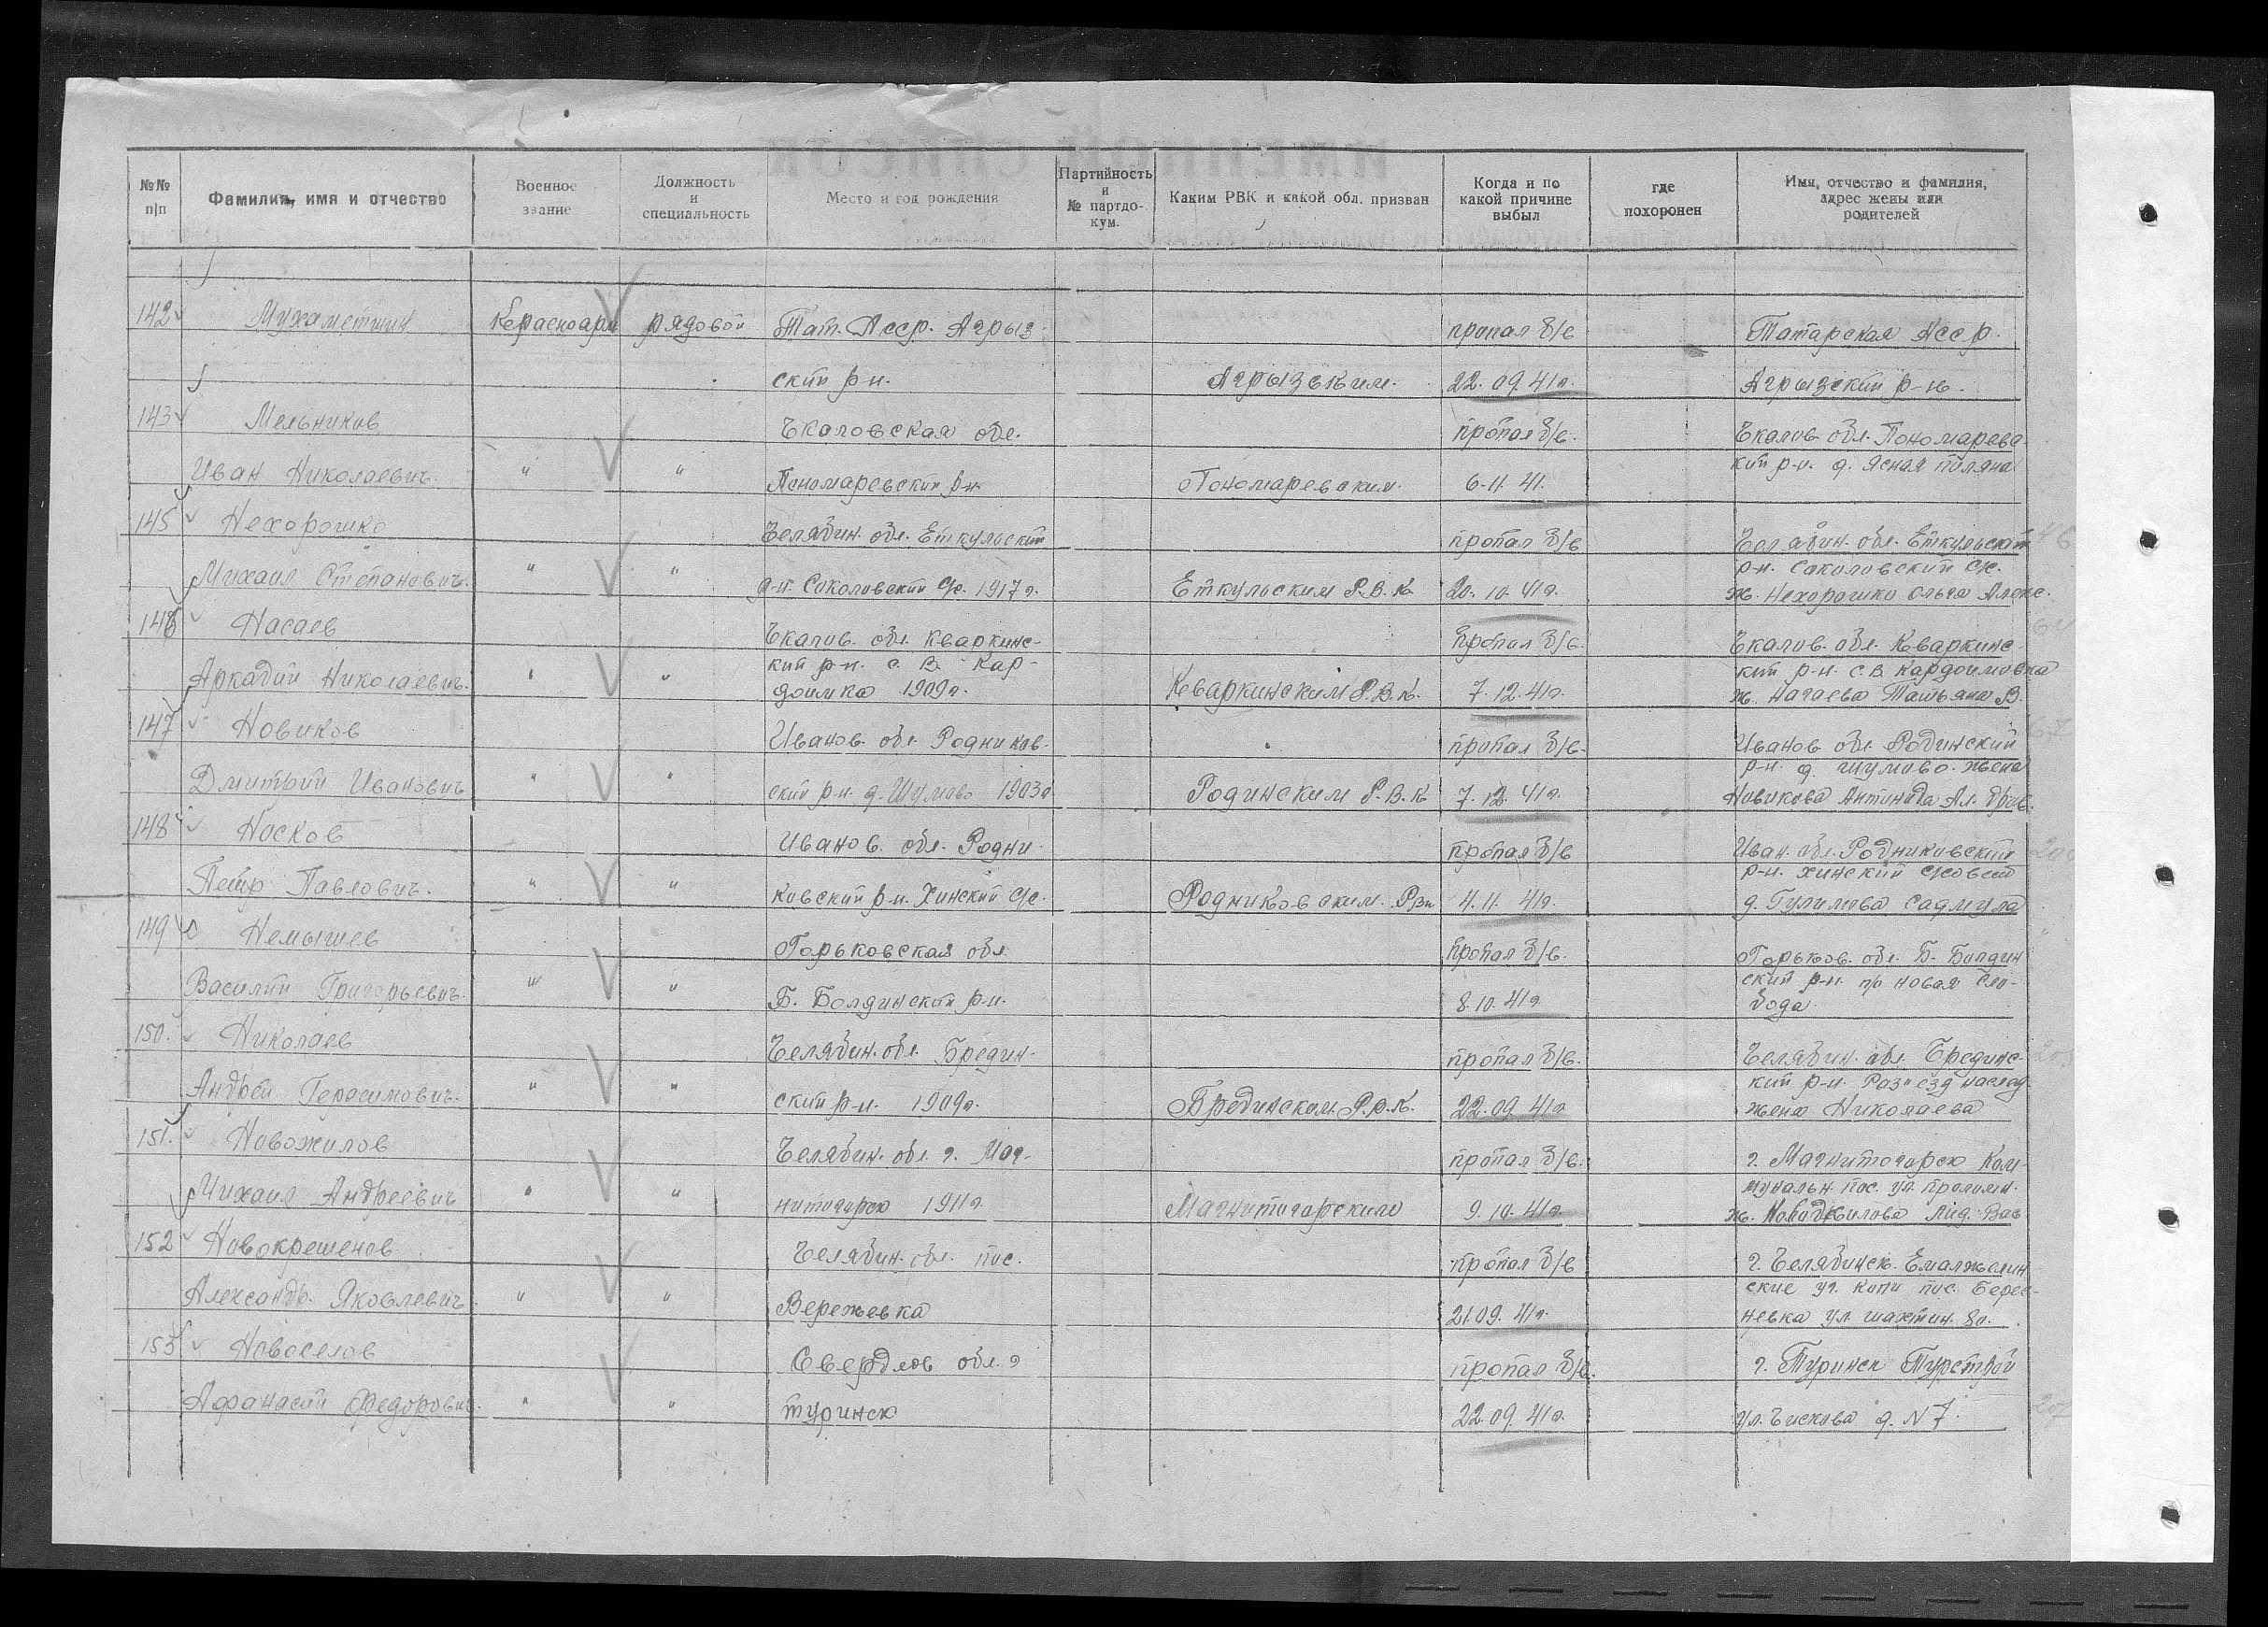 №№ п|п
Фамилия, имя и отчество
Военное звание
Должность и специальность
Место и год рождения
Партийность и № партдокум.
Каким РВК и какой обл. призван
Когда и по какой причине выбыл
где похоронен
Имя, отчество и фамилия, адрес жены или родителей
142 Мухаметшин Красноарм рядовой Тат. Асср. Агрыз пропал б/в Татарская Асср.
ский р-н. Агрызским. 22.09.41г. Агрызский р-н.
143 Мельников Чкаловская обл. пропал б/в. Чкалов. обл. Пономарев
Иван Николаевич. " " Пономаревский р-н Пономаревским. 6-11.41. кий р-н. д. Ясная поляна
145 Нехорошко Челябин. обл. Еткульский пропал б/в Челябин. обл. Еткульский
р-н. Соколовский с/с.
Михаил Степанович. " " р-н. Соколовский с/с. 1917г. Еткульским Р.В.К. 20.10.41г. ж. Нехорошко Ольга Алекс.
146 Нагаев Чкалов. обл. Кваркинс- пропал б/в. Чкалов. обл. Кваркинс
кий р-н. с. В. Кар- кий р-н. с. В. Кардоимовка
Аркадий Николаевич. " " доимка 1909г. Кваркинским Р.В.К. 7.12.41г. ж. Нагаева Татьяна В.
147 Новиков Иванов. обл. Родников. пропал б/в. Иванов обл. Родинский
р-н. д. Шумово. жена
Дмитрий Иванович " " ский р-н. д. Шумово 1903г Родинским Р.В.К 7.12.41г. Новикова Антинида Ал.
148 Носков Иванов. обл. Родни- пропал б/в Иван. обл. Родниковский
р-н. Хинский с/совет
Петр Павлович. " " ковский р-н. Хинский с/с. Родниковским. 4.11.41г. д.
149 Немышев Горьковская обл. пропал б/в. Горьков. обл. Б. Болдин
ский р-н. п/о Новая Сло-
Василий Григорьевич. " " Б. Болдинский р-н. 8.10.41г. бода.
150. Николаев Челябин. обл. Бредин- пропал б/в. Челябин. обл. Брединс-
кий р-н. Раз"езд
Андрей Герасимович. " " ский р-н. 1909г. Брединским. Р.В.К. 22.09.41г. жена Николаева
151. Новожилов Челябин. обл. г. Маг- пропал б/в. г. Магнитогорск Ком-
мунальн. пос. ул.
Михаил Андреевич " " нитогорск 1911г. Магнитогорским 9.10.41г. ж. Новожилова Лид. Вас
152 Новокрешенов Челябин. обл. пос. пропал б/в г. Челябинск. Еманжелин
ские уг. копи пос. Берез-
Александр. Яковлевич. " " Вережевка 21.09.41г. невка ул. шахтин. 80.
153 Новоселов Свердлов обл. г пропал б/в. г. Туринск Турстрой
Афанасий Федорович. " " Туринск 22.09.41г. ул. Чискова д. N 7.